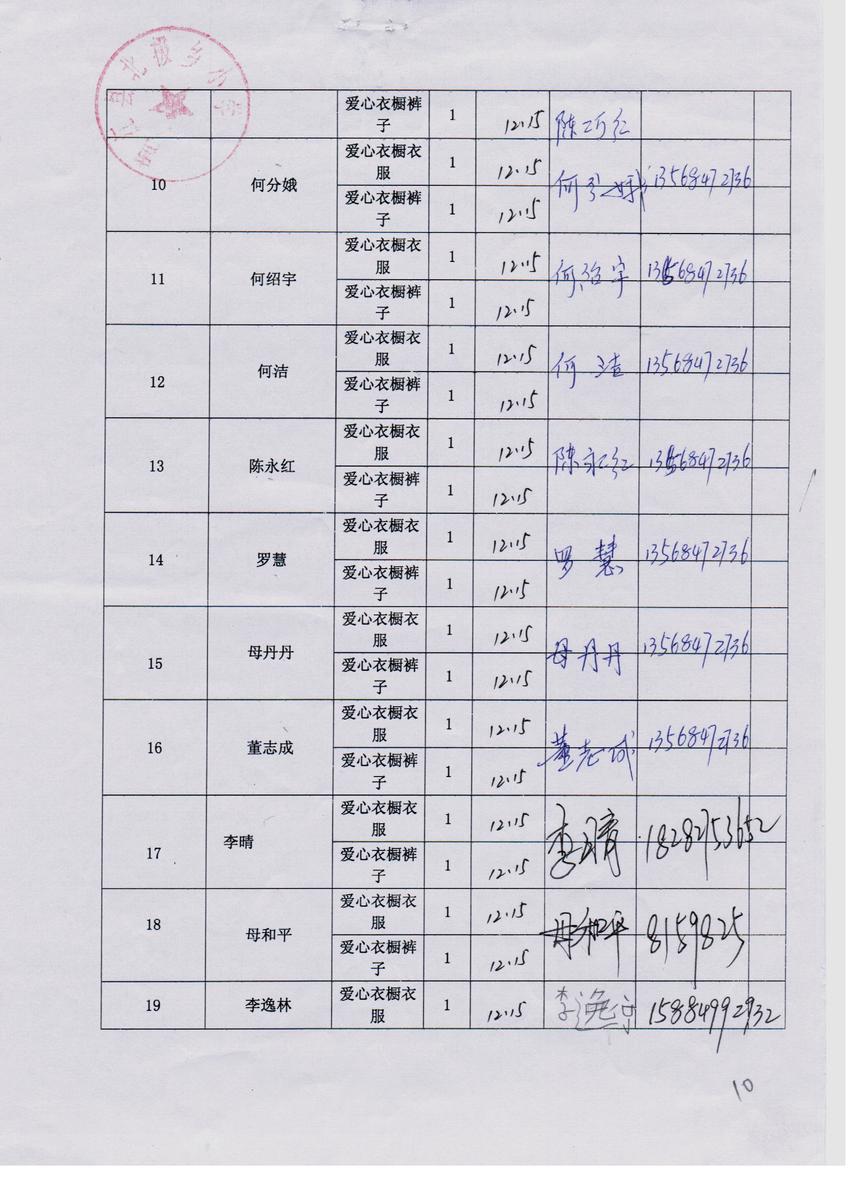 爱心衣橱裤子 1 12.15 陈巧红
10 何分娥 爱心衣橱衣服 1 12.15 何分娥 13568472736
爱心衣橱裤子 1 12.15
11 何绍宇 爱心衣橱衣服 1 12.15 何绍宇 13568472736
爱心衣橱裤子 1 12.15
12 何洁 爱心衣橱衣服 1 12.15 何洁 13568472736
爱心衣橱裤子 1 12.15
13 陈永红 爱心衣橱衣服 1 12.15 陈永红 13568472736
爱心衣橱裤子 1 12.15
14 罗慧 爱心衣橱衣服 1 12.15 罗慧 13568472736
爱心衣橱裤子 1 12.15
15 母丹丹 爱心衣橱衣服 1 12.15 母丹丹 13568472736
爱心衣橱裤子 1 12.15
16 董志成 爱心衣橱衣服 1 12.15 董志成 13568472736
爱心衣橱裤子 1 12.15
17 李晴 爱心衣橱衣服 1 12.15 李晴 18282753652
爱心衣橱裤子 1 12.15
18 母和平 爱心衣橱衣服 1 12.15 母和平 8159825
爱心衣橱裤子 1 12.15
19 李逸林 爱心衣橱衣服 1 12.15 李逸 15884992932
10